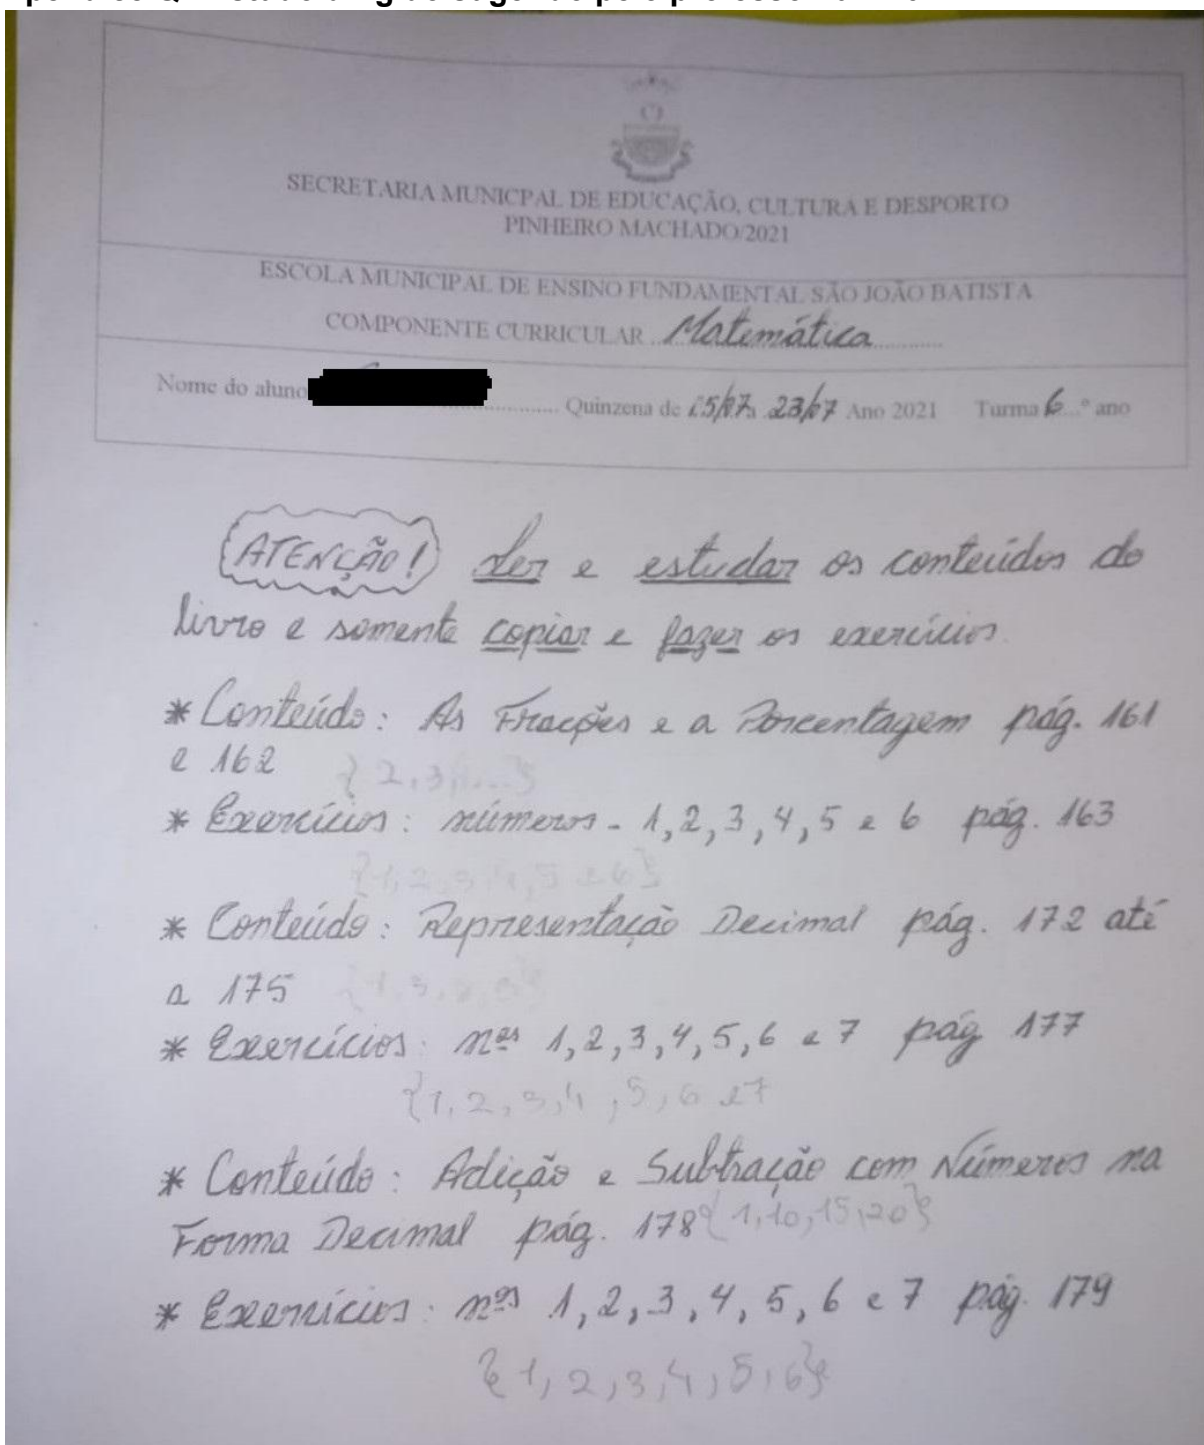 SECRETARIA MUNICPAL DE EDUCAÇÃO, CULTURA E DESPORTO
PINHEIRO MACHADO/2021
ESCOLA MUNICIPAL DE ENSINO FUNDAMENTAL SÃO JOÃO BATISTA
COMPONENTE CURRICULAR Matemática
Nome do aluno Quinzena de a 23/07 Ano 2021 Turma 6 º ano
ATENÇÃO! Ler e estudar os conteúdos do
livro e somente copiar e fazer os exercícios.
* Conteúdo: As Frações e a Porcentagem pág. 161
e 162
{2,3,...}
* Exercícios: números - 1, 2, 3, 4, 5 e 6 pág. 163
{1,2,3,4,5 e 6}
* Conteúdo: Representação Decimal pág. 172 até
a 175
* Exercícios: nºs 1, 2, 3, 4, 5, 6 e 7 pág 177
{1, 2, 3, 4, 5, 6 e 7
* Conteúdo: Adição e Subtração com Números na
Forma Decimal pág. 178 {1, 10, 15, 20}
* Exercícios: nºs 1, 2, 3, 4, 5, 6 e 7 pág. 179
{1, 2, 3, 4, 5, 6}